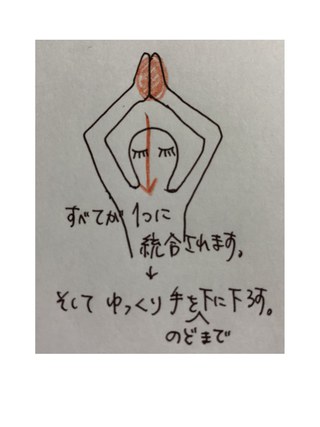 すべてが 1つに
統合されます。
↓
そして ゆっくり 手を下に下ろす。
のどまで